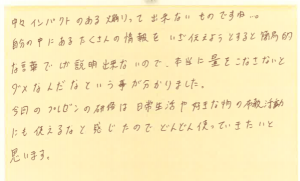 中々インパクトのある煽りって出来ないものですね…。
自分の中にあるたくさんの情報をいざ伝えようとすると簡易的
な言葉でしか説明出来ないので、本当に量をこなさないと
ダメなんだなという事が分かりました。
今回のプレゼンの研修は日常生活や好きな物の布教活動
にも使えるなと感じたのでどんどん使っていきたいと
思います。